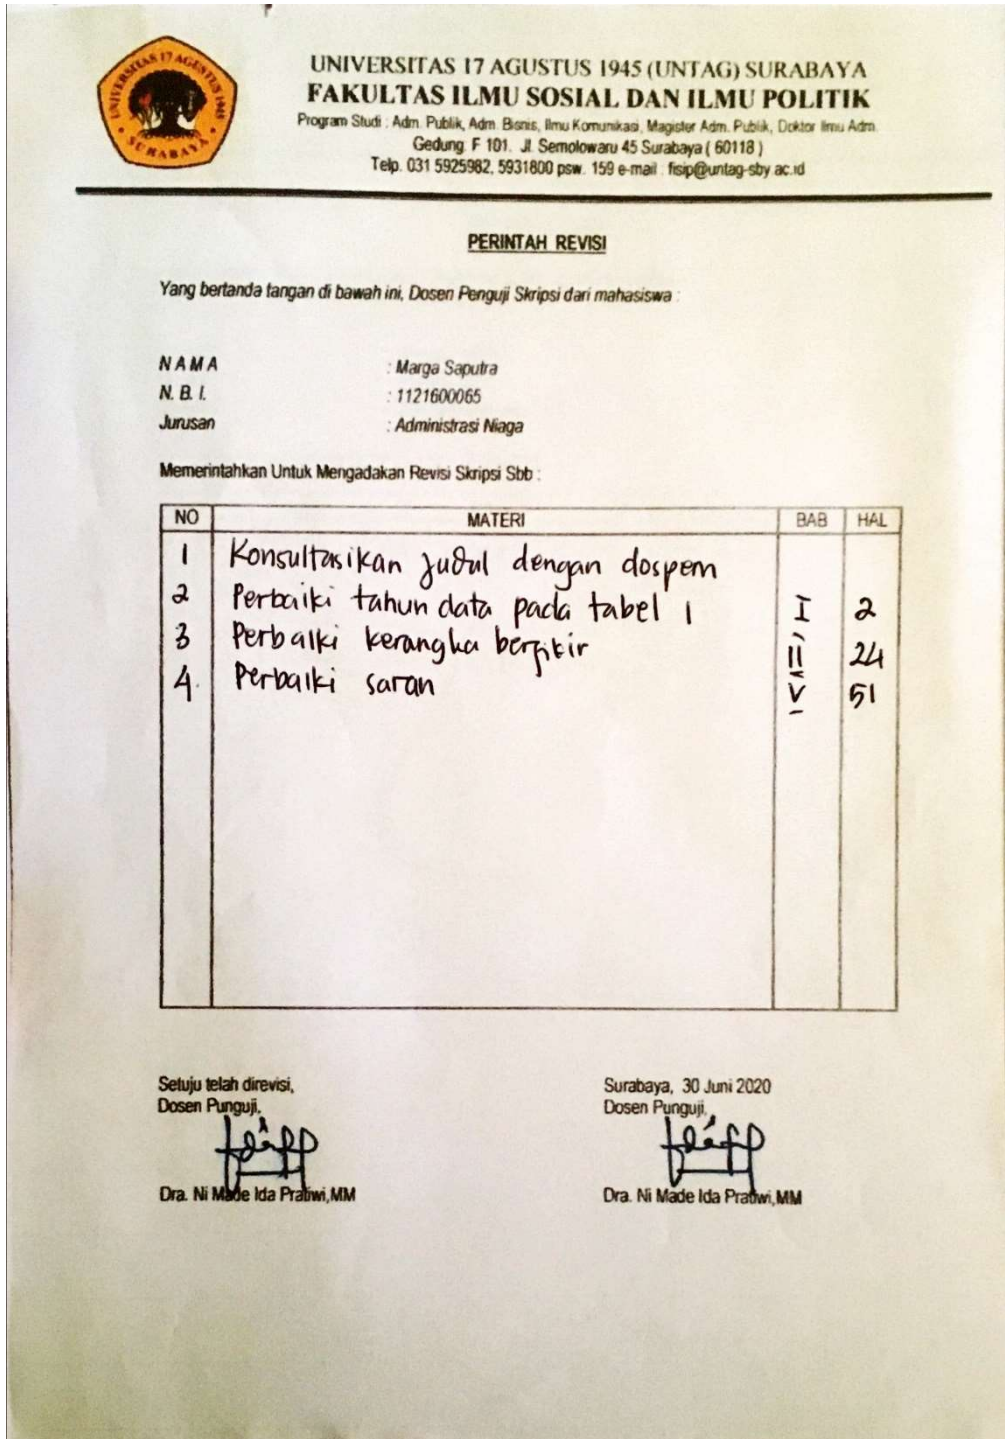 UNIVERSITAS 17 AGUSTUS 1945
SURABAYA
UNIVERSITAS 17 AGUSTUS 1945 (UNTAG) SURABAYA
FAKULTAS ILMU SOSIAL DAN ILMU POLITIK
Program Studi : Adm. Publik, Adm. Bisnis, Ilmu Komunikasi, Magister Adm. Publik, Doktor Ilmu Adm.
Gedung. F 101. Jl. Semolowaru 45 Surabaya ( 60118 )
Telp. 031 5925982, 5931800 psw. 159 e-mail : fisip@untag-sby.ac.id
PERINTAH REVISI
Yang bertanda tangan di bawah ini, Dosen Penguji Skripsi dari mahasiswa :
N A M A : Marga Saputra
N. B. I. : 1121600065
Jurusan : Administrasi Niaga
Memerintahkan Untuk Mengadakan Revisi Skripsi Sbb :
NO MATERI BAB HAL
1 Konsultasikan judul dengan dospem
2 Perbaiki tahun data pada tabel 1 I 2
3 Perbaiki kerangka berfikir II 24
4. Perbaiki saran V 51
Setuju telah direvisi, Surabaya, 30 Juni 2020
Dosen Punguji, Dosen Punguji,
Dra. Ni Made Ida Pratiwi,MM Dra. Ni Made Ida Pratiwi,MM